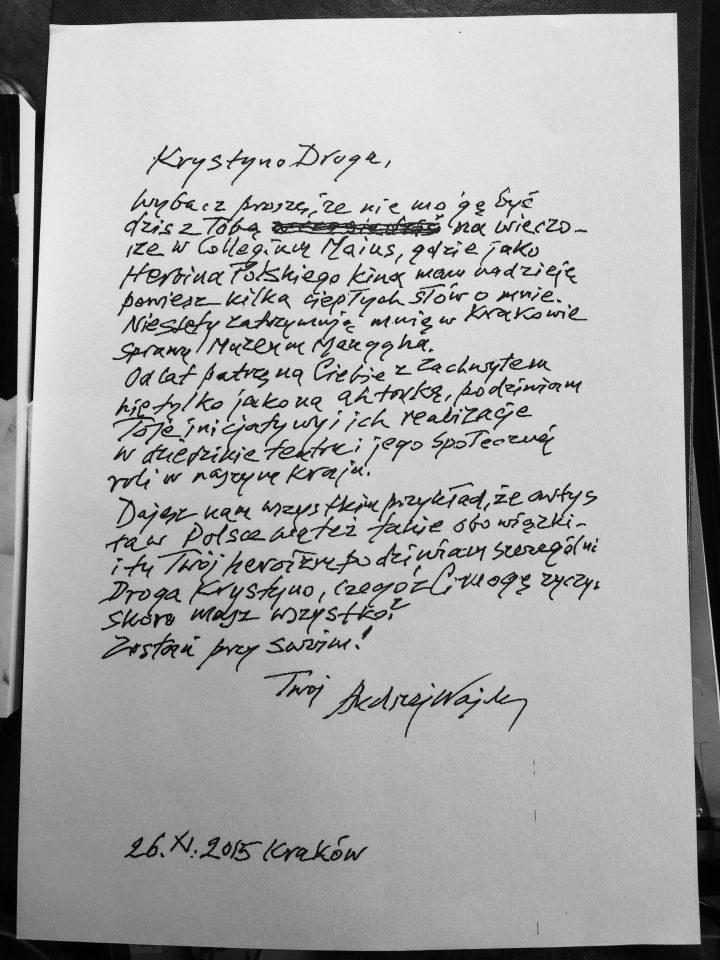 Krystyno Droga,
Wybacz proszę, że nie mogę być
dziś z Tobą na wieczo-
rze w Collegium Maius, gdzie jako
Polskiego kina mam nadzieję
powiesz kilka ciepłych słów o mnie.
Niestety zatrzymują mnie w Krakowie
sprawy Muzeum Manggha.
Od lat patrzę na Ciebie z zachwytem
nie tylko jako na aktorkę, podziwiam
Toje inicjatywy i ich realizacje
w dziedzinie teatru i jego społecznej
roli w naszym kraju.
Dajesz nam wszystkim przykład, że artys
ta w Polsce ma też takie obowiązki -
i ty Twój heroizm podziwiam szczególni
Droga Krystyno, czegóż Ci mogę życzy.
skoro masz wszystko?
Zostań przy swoim!
Twój Andrzej Wajda
26.XI.2015 Kraków